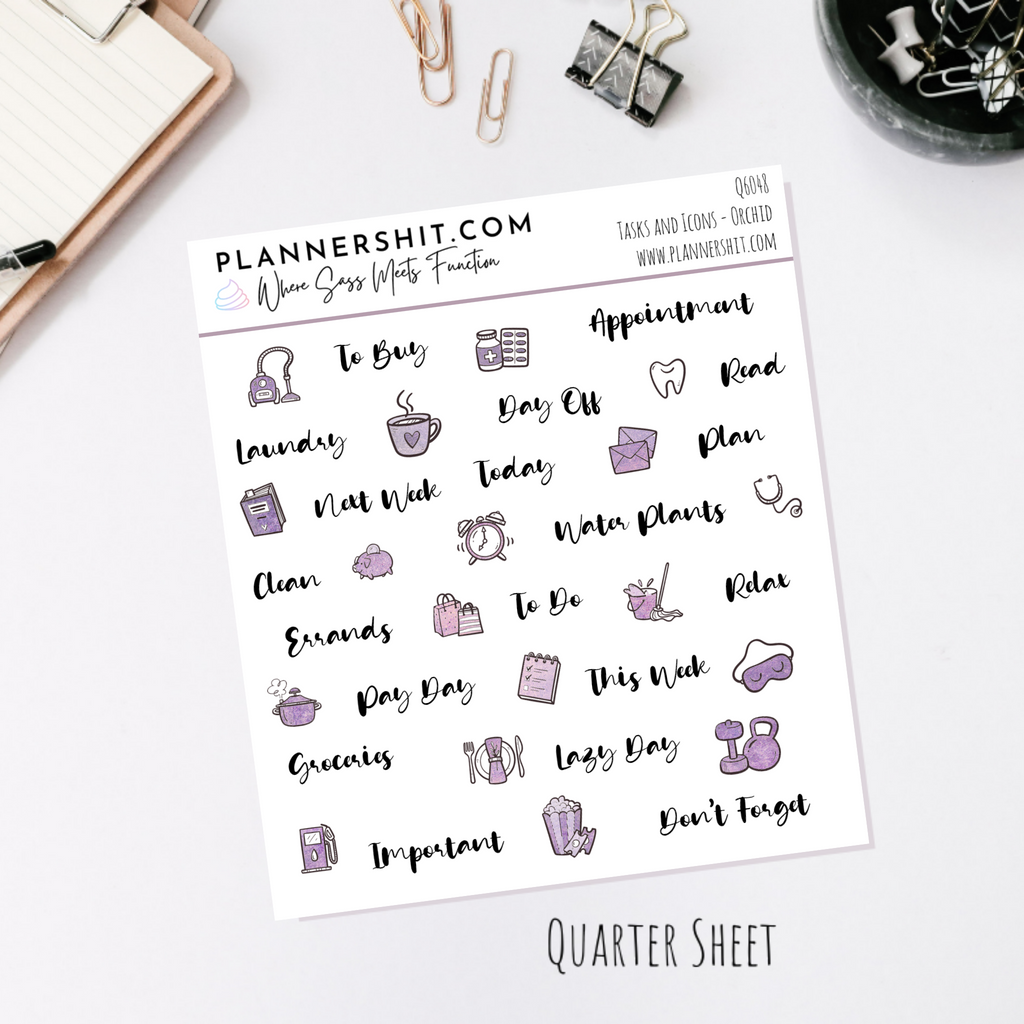 PLANNERSHIT.COM
Where Sass Meets Function
Q6048
Tasks and Icons - Orchid
www.plannershit.com
To Buy
Appointment
Laundry
Day Off
Read
Next Week
Today
Plan
Clean
Water Plants
Errands
To Do
Relax
Pay Day
This Week
Groceries
Lazy Day
Important
Don't Forget
Quarter Sheet